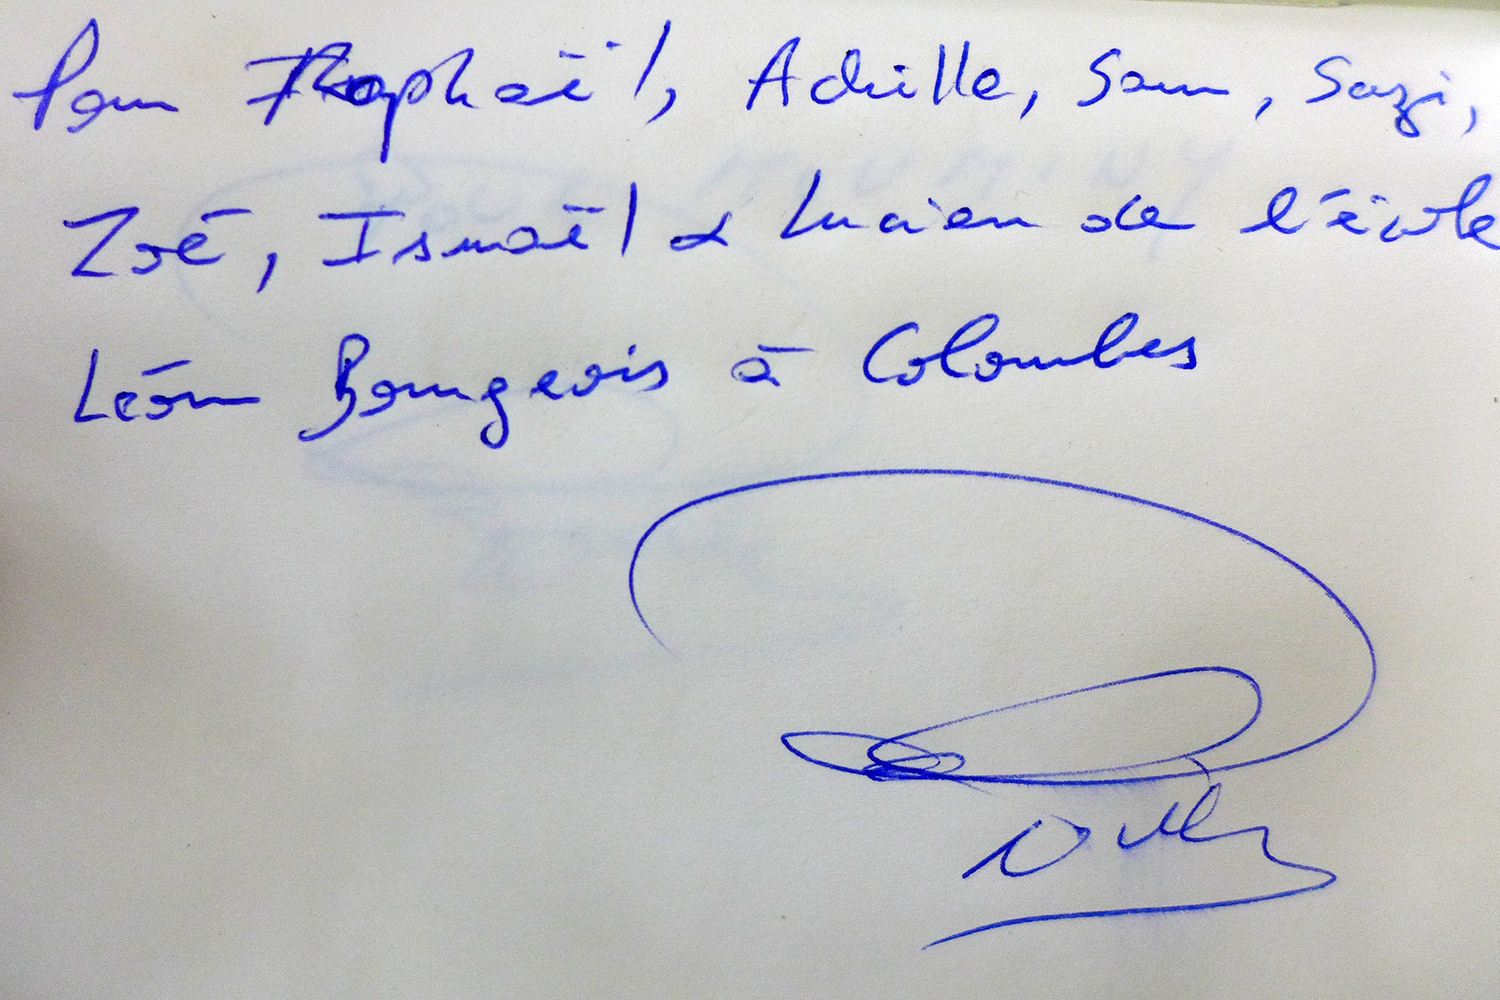 Pour Raphaël, Achille, Sam, Suzi,
Zoé, Ismaël & Lucien de l'école
Léon Bourgeois à Colombes